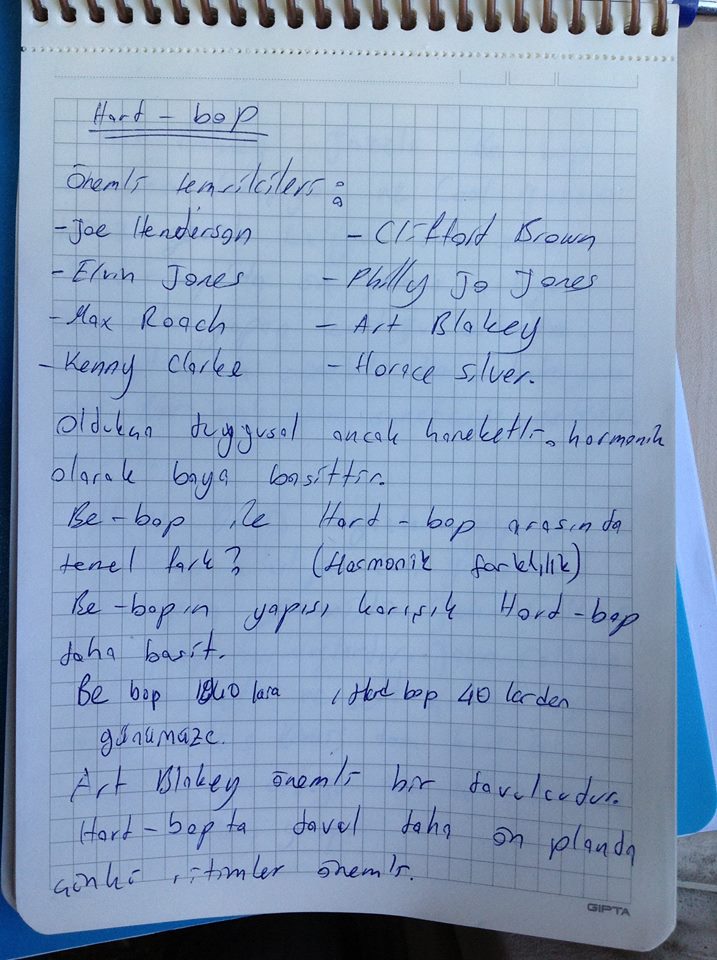 Hard - bop
Önemli temsilcileri :
- Joe Henderson - Clifford Brown
- Elvin Jones - Philly Jo Jones
- Max Roach - Art Blakey
- Kenny Clarke - Horace Silver.
Oldukça duygusal ancak hareketli, harmonik
olarak baya basittir.
Be-bop ile Hard-bop arasında
temel fark? (Harmonik farklılık)
Be-bopın yapısı karışık Hard-bop
daha basit.
Be bop 1940 lara , Hard bop 40 lardan
günümüze.
Art Blakey önemli bir davulcudur.
Hard-bopta davul daha ön planda
çünkü ritimler önemli.
GIPTA